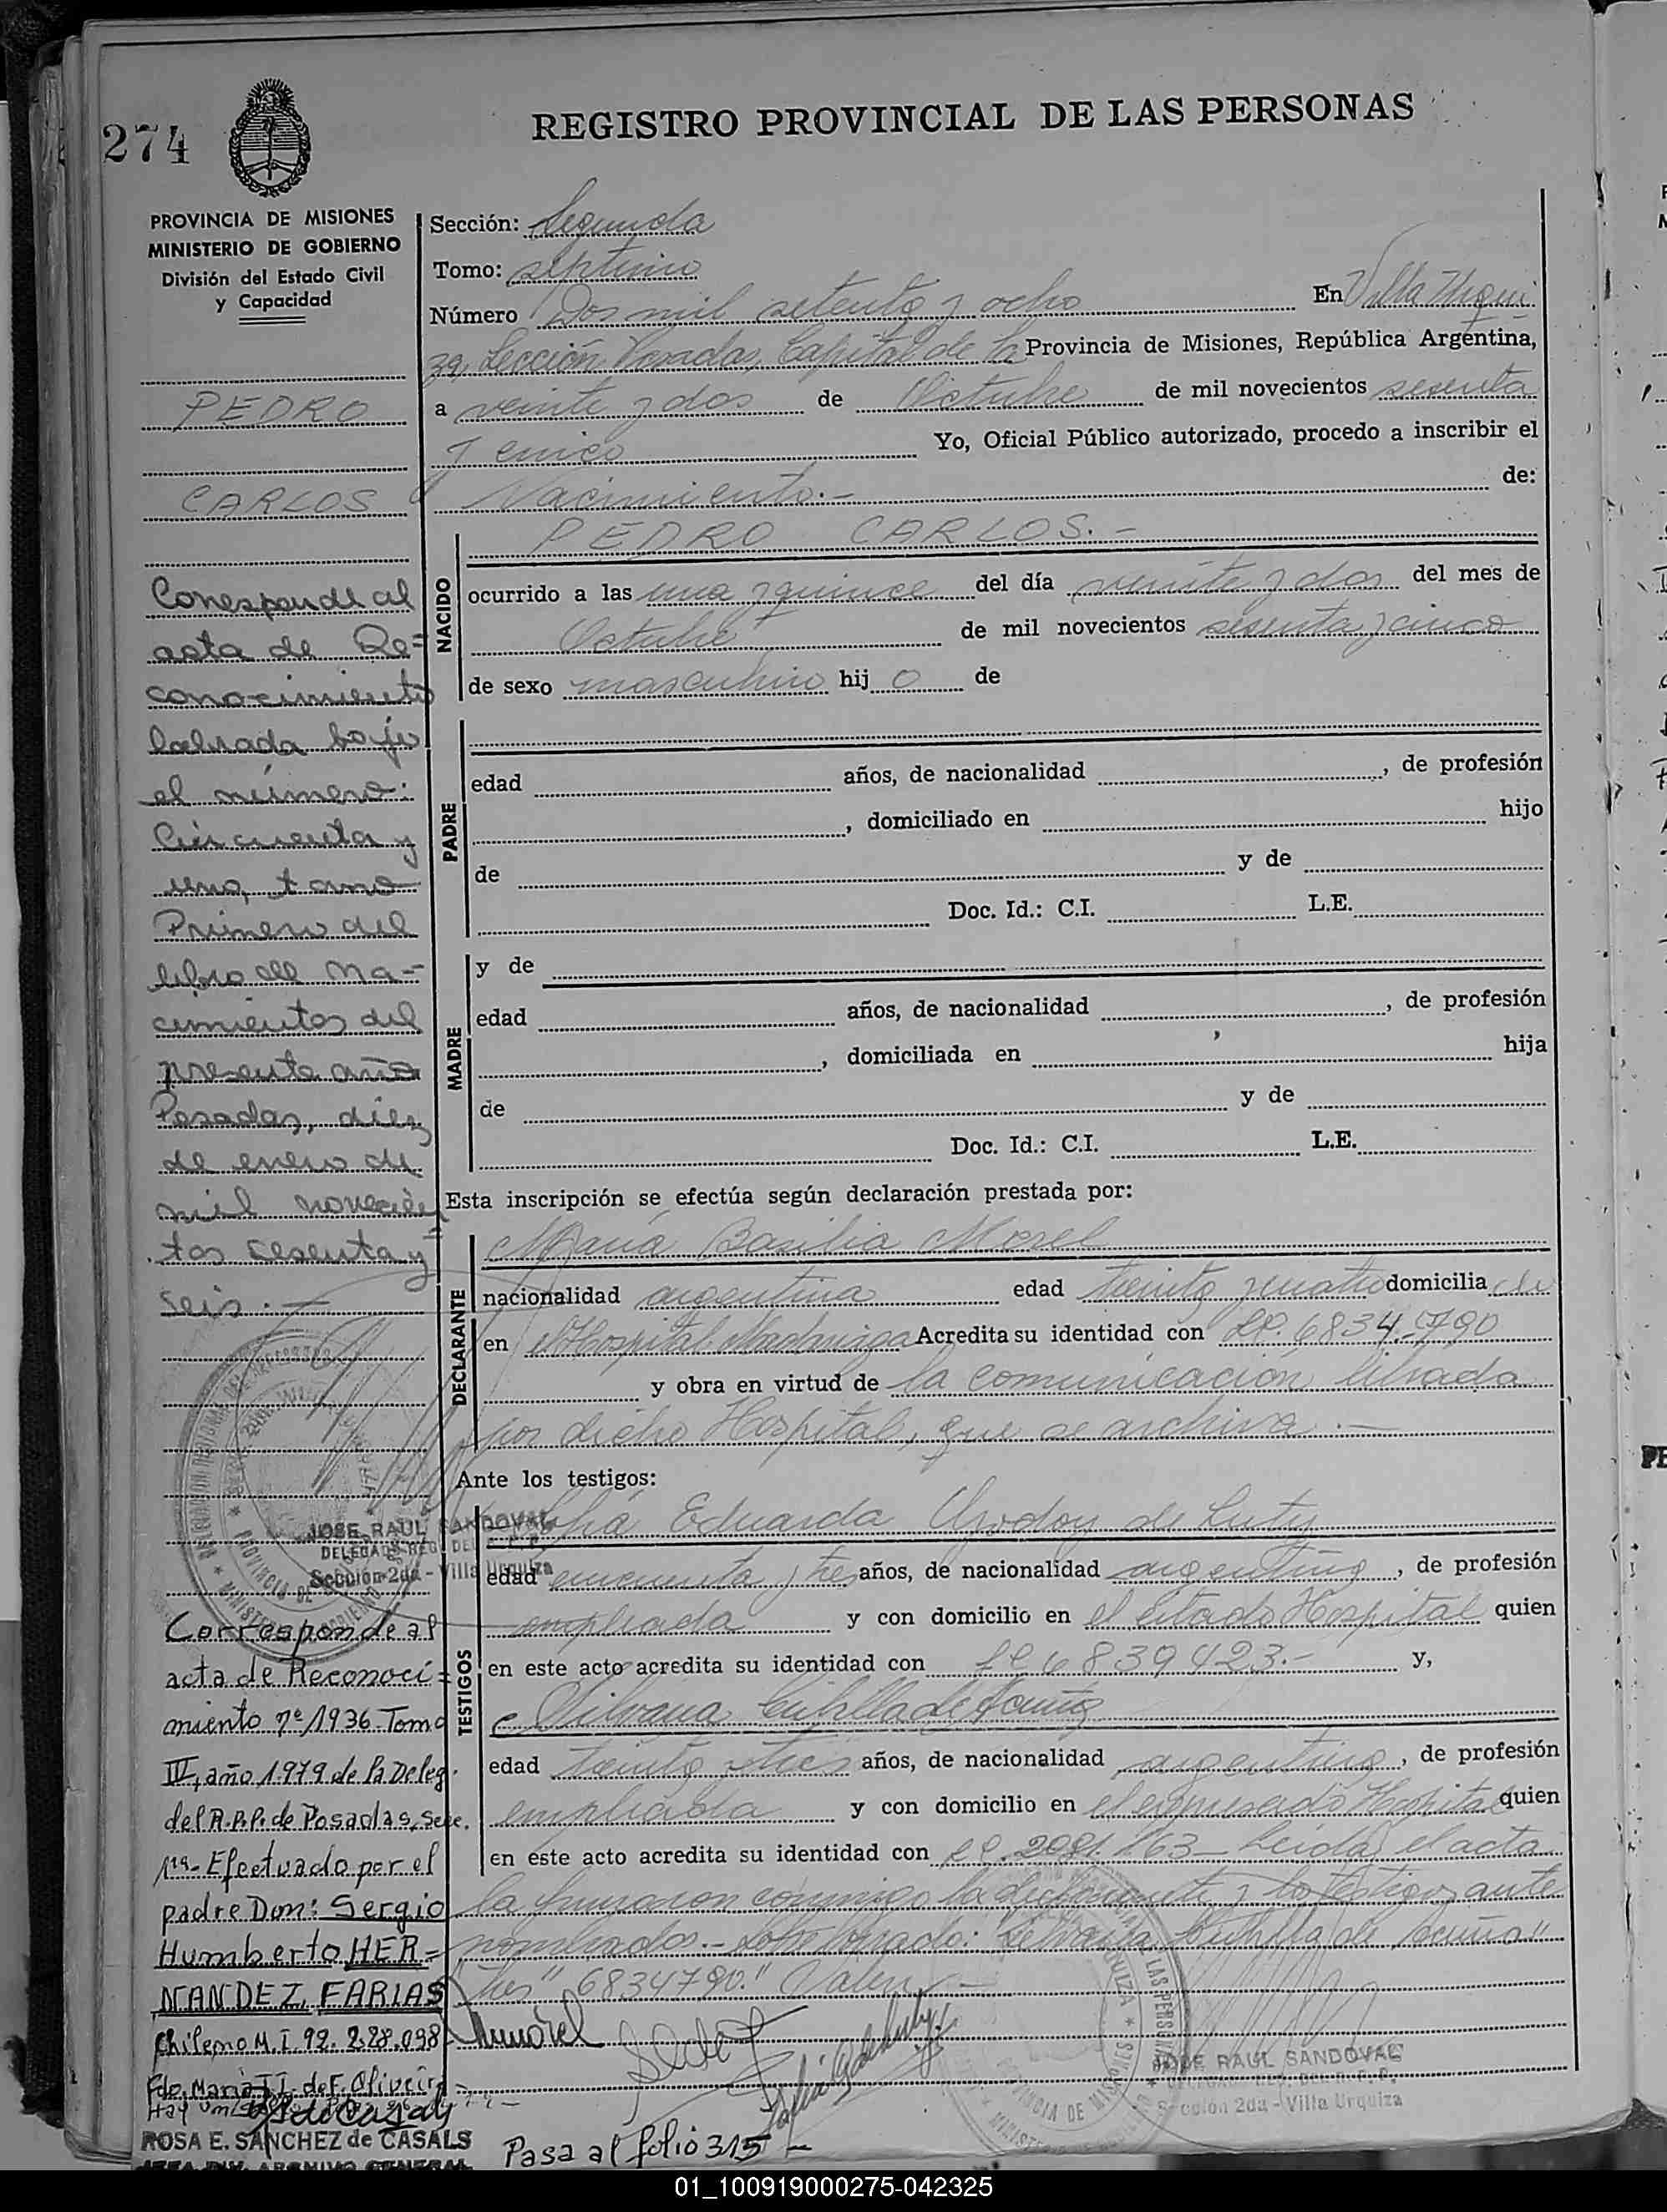 274
REGISTRO PROVINCIAL DE LAS PERSONAS
PROVINCIA DE MISIONES
MINISTERIO DE GOBIERNO
División del Estado Civil
y Capacidad
PEDRO
CARLOS
Corresponde al
acta de Re=
conocimiento
labrada bajo
el número:
Cincuenta y
uno, tomo
Primero del
libro de Na=
cimientos del
presente año
Posadas, diez
de enero de
mil novecien=
tos sesenta y
seis.—
JOSE RAUL SANDOVAL
Sección 2da - Villa Urquiza
Corresponde al
acta de Reconoci=
miento nº 1936 Tomo
IV, año 1979 de la Deleg.
del R.P.P. de Posadas, Secc.
1ra- Efectuado por el
padre Don: Sergio
Humberto HER=
NANDEZ FARIAS
chileno M.I. 92.228.098
Fdo. María I. de F. Oliveira
Hay un
ROSA E. SANCHEZ de CASALS
JEFA DIV. ARCHIVO GENERAL
Sección: Segunda
Tomo: septimo
Número Dos mil setenta y ocho En Villa Urqui
za, Sección Posadas, Capital de la Provincia de Misiones, República Argentina,
a veinte y dos de Octubre de mil novecientos sesenta
y cinco Yo, Oficial Público autorizado, procedo a inscribir el
Nacimiento.- de:
PEDRO CARLOS.-
NACIDO
ocurrido a las una y quince del día veinte y dos del mes de
Octubre de mil novecientos sesenta y cinco
de sexo masculino hijo de
PADRE
edad años, de nacionalidad , de profesión
, domiciliado en hijo
de y de
Doc. Id.: C.I. L.E.
MADRE
y de
edad años, de nacionalidad , de profesión
, domiciliada en hija
de y de
Doc. Id.: C.I. L.E.
Esta inscripción se efectúa según declaración prestada por:
DECLARANTE
María Basilia Morel
nacionalidad argentina edad treinta y cuatro domicilia da
en el Hospital Madariaga Acredita su identidad con LC. 6834.790
y obra en virtud de la comunicación librada
por dicho Hospital, que se archiva.—
Ante los testigos:
TESTIGOS
Eduarda Godoy de
edad cincuenta y tres años, de nacionalidad argentina, de profesión
empleada y con domicilio en el citado Hospital quien
en este acto acredita su identidad con LC 6839423.- y,
Silvana Cubilla de Acuña
edad treinta y tres años, de nacionalidad argentina, de profesión
empleada y con domicilio en el expresado Hospital quien
en este acto acredita su identidad con LC. 2081.163- Leída el acta
la firmaron conmigo la declarante y los testigos ante
nombrados.- Sobre borrado: "Silvana Cubilla de Acuña"
"tres" "6834790." Valen.-
JOSE RAUL SANDOVAL
Sección 2da - Villa Urquiza
Pasa al folio 315-
01_100919000275-042325